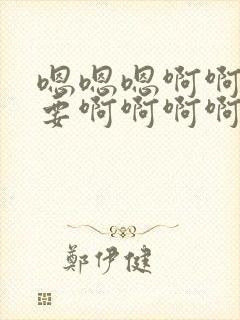 嗯嗯嗯啊啊
要啊啊啊啊
鄭伊健